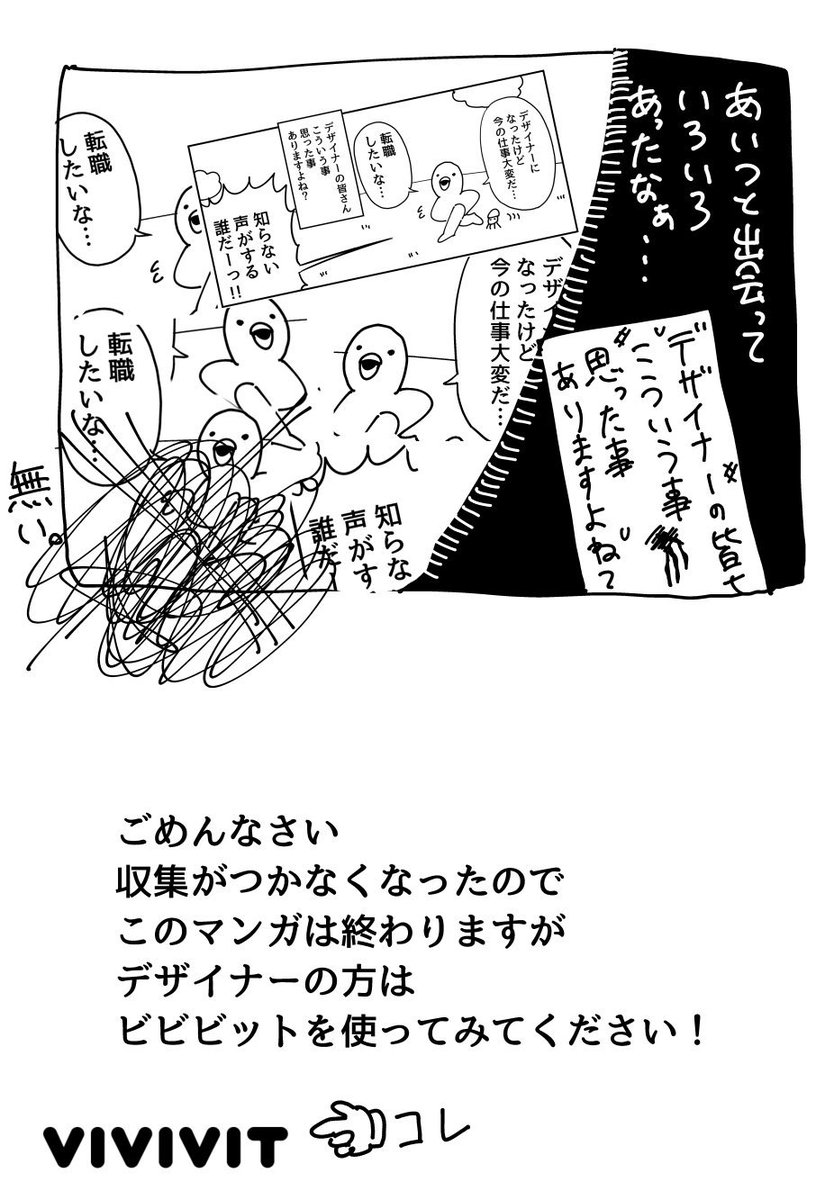 あいつと出会って
いろいろ
あったなぁ…
デザイナーの皆さ
こういう事
思った事
ありますよね?
デザイナーに
なったけど
今の仕事大変だ…
転職
したいな…
デザイナーの皆さん
こういう事
思った事
ありますよね?
知らない
声がする
誰だーっ!!
転職
したいな…
デザイ
なったけど
今の仕事大変だ…
転職
したいな…
知らな
声がす
誰だ
無
ごめんなさい
収集がつかなくなったので
このマンガは終わりますが
デザイナーの方は
ビビビットを使ってみてください!
VIVIVIT コレ